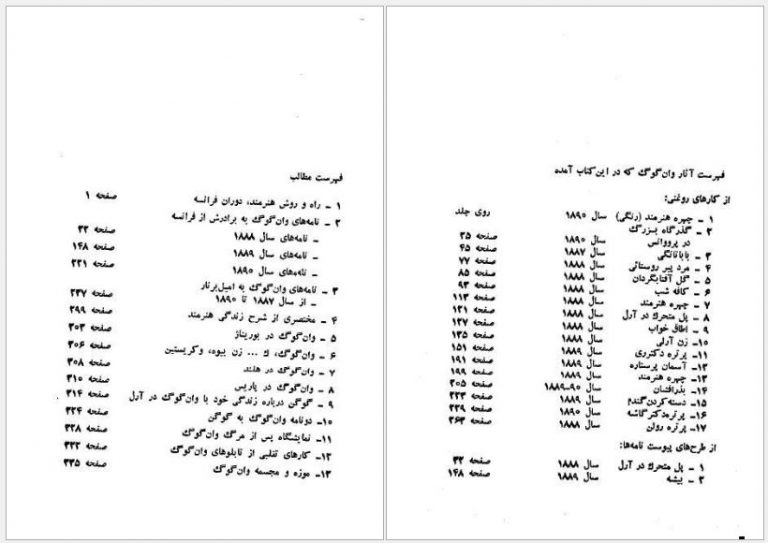 فهرست آثار وان‌گوگ که در این کتاب آمده
از کارهای روغنی:
۱ ـ چهره هنرمند (رنگی) سال ۱۸۹۰ روی جلد
۲ ـ گذرگاه بزرگ
در پرووانس سال ۱۸۹۰ صفحه ۳۵
۳ ـ باباتانگی سال ۱۸۸۷ صفحه ۴۵
۴ ـ مرد پیر روستائی سال ۱۸۸۸ صفحه ۷۷
۵ ـ گل آفتابگردان سال ۱۸۸۸ صفحه ۸۵
۶ ـ کافه شب سال ۱۸۸۸ صفحه ۹۳
۷ ـ چهره هنرمند سال ۱۸۸۸ صفحه ۱۱۳
۸ ـ پل متحرك در آرل سال ۱۸۸۸ صفحه ۱۲۱
۹ ـ اطاق خواب سال ۱۸۸۸ صفحه ۱۲۷
۱۰ـ زن آرلی سال ۱۸۸۸ صفحه ۱۳۵
۱۱ـ پرتره دکتر‌ری سال ۱۸۸۹ صفحه ۱۵۱
۱۲ـ آسمان پرستاره سال ۱۸۸۹ صفحه ۱۹۱
۱۳ـ چهره هنرمند سال ۱۸۸۹ صفحه ۱۹۹
۱۴ـ بذرافشان سال ۹۰-۱۸۸۹ صفحه ۲۰۵
۱۵ـ دسته‌کردن‌گندم سال ۱۸۸۹ صفحه ۲۲۳
۱۶ـ پرتره‌دکترگاشه سال ۱۸۹۰ صفحه ۲۲۹
۱۷ـ پرتره رولن سال ۱۸۸۸ صفحه ۲۶۳
از طرح‌های پیوست نامه‌ها:
۱ ـ پل متحرك در آرل سال ۱۸۸۸ صفحه ۳۲
۲ ـ بیشه سال ۱۸۸۹ صفحه ۱۴۸
فهرست مطالب
۱ ـ راه و روش هنرمند، دوران فرانسه صفحه ۱
۲ ـ نامه‌های وان‌گوگ به برادرش از فرانسه
ـ نامه‌های سال ۱۸۸۸ صفحه ۳۲
ـ نامه‌های سال ۱۸۸۹ صفحه ۱۴۸
ـ نامه‌های سال ۱۸۹۰ صفحه ۲۲۱
۳ ـ نامه‌های وان‌گوگ به امیل‌برنار
ـ از سال ۱۸۸۷ تا ۱۸۹۰ صفحه ۲۳۷
۴ ـ مختصری از شرح زندگی هنرمند صفحه ۲۹۹
۵ ـ وان‌گوگ در بوریناژ صفحه ۳۰۳
۶ ـ وان‌گوگ، ك ... زن بیوه، وکریستین صفحه ۳۰۶
۷ ـ وان‌گوگ در هلند صفحه ۳۰۸
۸ ـ وان‌گوگ در پاریس صفحه ۳۱۰
۹ ـ گوگن درباره زندگی خود با وان‌گوگ در آرل صفحه ۳۱۴
۱۰ـ دونامه وان‌گوگ به گوگن صفحه ۳۲۴
۱۱ـ نمایشگاه پس از مرگ وان‌گوگ صفحه ۳۲۸
۱۲ـ کارهای تقلبی از تابلوهای وان‌گوگ صفحه ۳۳۲
۱۳ـ موزه و مجسمه وان‌گوگ صفحه ۳۳۵